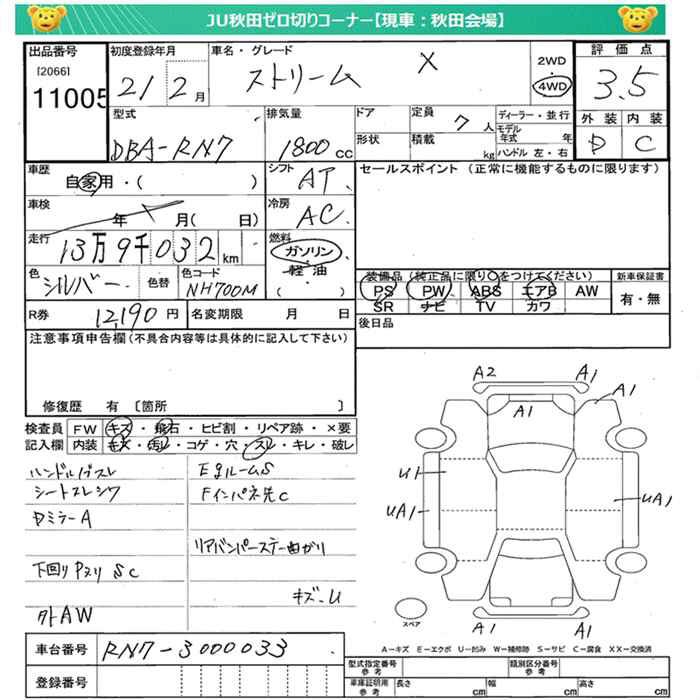 JU秋田ゼロ切りコーナー【現車：秋田会場】
出品番号 初度登録年月 車名・グレード 評価点
[2066] 11005 21 2月 ストリーム X 2WD 4WD 3.5
外装 内装
D C
型式 排気量 ドア 定員 7人 ディーラー・並行
DBA-RN7 1800cc 形状 積載 kg モデル年式 年 ハンドル 左・右
車歴 自家用・( ) シフト AT セールスポイント (正常に機能するものに限ります)
車検 年 月( 日) 冷房 AC
走行 13万9千032km 燃料 ガソリン・軽油 ( )
色 シルバー 色替 色コード NH700M
装備品 (純正品に限り○をつけてください) 新車保証書
PS PW ABS エアB AW 有・無
SR ナビ TV カワ
R券 12,190円 名変期限 月 日 後日品
注意事項申告欄(不具合内容等は具体的に記入して下さい)
修復歴 有〔箇所 〕
検査員記入欄
FW キズ・飛石・ヒビ割・リペア跡・×要
内装 キズ・汚レ・コゲ・穴・スレ・キレ・破レ
シートスレシワ
DミラーA
下回りPヌリ SC
リアバンパーステー曲がり
キズ-U
A2 A1
A1 A1
U1
UA1 UA1
A1 A1
スペア
A－キズ E－エクボ U－凹み W－補修跡 S－サビ C－腐食 XX－交換済
車台番号 RN7-3000033
登録番号
型式指定番号 参考 類別区分番号 参考
車庫証明用 参考 長さ cm 幅 cm 高さ cm